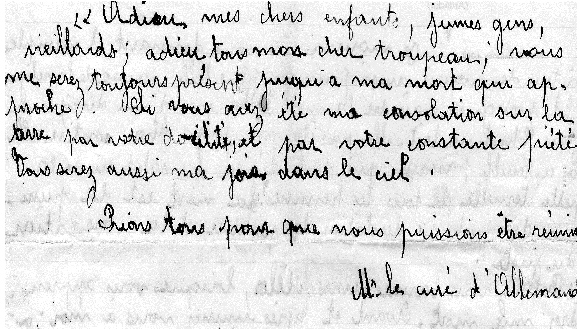 "Adieu mes chers enfants, jeunes gens,
vieillards; adieu tous mon cher troupeau; vous
me serez toujours présent jusqu'a ma mort qui ap-
proche. Si vous avez été ma consolation sur la
terre par votre docilité, et par votre constante piété
Vous serez aussi ma joie dans le ciel.
Prions tous pour que nous puissions être réunis
Mr. le curé d'Allemand